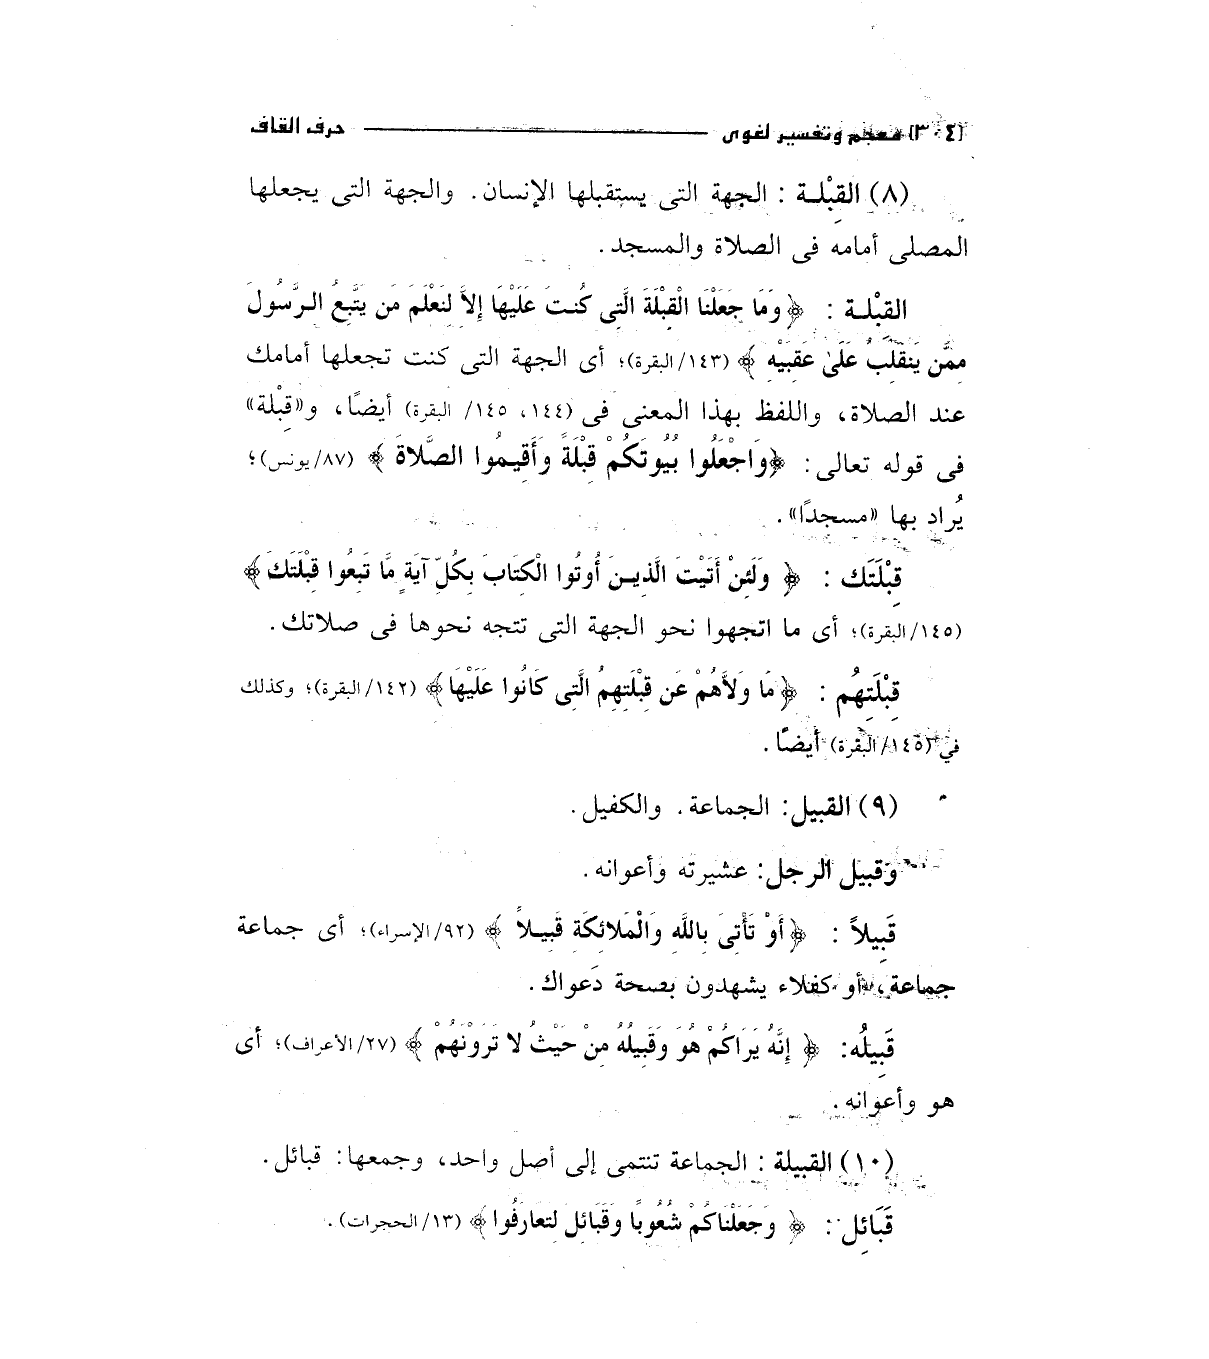 (٣٠٤) معجم وتفسير لغوى ــــــــــــــــــــ حرف القاف
(٨) القِبْلـة : الجهة التى يستقبلها الإنسان. والجهة التى يجعلها
المصلى أمامه فى الصلاة والمسجد.
القِبْلـة : ﴿ وَمَا جَعَلْنَا الْقِبْلَةَ الَّتِى كُنتَ عَلَيْهَا إِلاَّ لِنَعْلَمَ مَن يَتَّبِعُ الرَّسُولَ
مِمَّن يَنقَلِبُ عَلَىٰ عَقِبَيْهِ ﴾ (١٤٣/البقرة)؛ أى الجهة التى كنت تجعلها أمامك
عند الصلاة، واللفظ بهذا المعنى فى (١٤٤، ١٤٥/ البقرة) أيضًا، و«قِبْلة»
فى قوله تعالى: ﴿وَاجْعَلُوا بُيُوتَكُمْ قِبْلَةً وَأَقِيمُوا الصَّلاةَ ﴾ (٨٧/يونس)؛
يُراد بها «مسجدًا».
قِبْلَتَك : ﴿ وَلَئِنْ أَتَيْتَ الَّذِينَ أُوتُوا الْكِتَابَ بِكُلِّ آيَةٍ مَّا تَبِعُوا قِبْلَتَكَ ﴾
(١٤٥/البقرة)؛ أى ما اتجهوا نحو الجهة التى تتجه نحوها فى صلاتك.
قِبْلَتِهُم : ﴿مَا وَلاَّهُمْ عَن قِبْلَتِهِمُ الَّتِى كَانُوا عَلَيْهَا﴾ (١٤٢/البقرة)؛ وكذلك
في (١٤٥/البقرة) أيضًا.
(٩) القبيل: الجماعة. والكفيل.
وقبيل الرجل: عشيرته وأعوانه.
قَبِيلاً : ﴿ أَوْ تَأْتِىَ بِاللَّهِ وَالْمَلائِكَةِ قَبِيلاً ﴾ (٩٢/الإسراء)؛ أى جماعة
جماعة، أو كفلاء يشهدون بصحة دَعواك.
قَبِيلُه: ﴿ إِنَّهُ يَرَاكُمْ هُوَ وَقَبِيلُهُ مِنْ حَيْثُ لا تَرَوْنَهُمْ ﴾ (٢٧/الأعراف)؛ أى
هو وأعوانه.
(١٠) القبيلة : الجماعة تنتمى إلى أصل واحد، وجمعها: قبائل.
قَبَائِل : ﴿ وَجَعَلْنَاكُمْ شُعُوبًا وَقَبَائِلَ لِتَعَارَفُوا ﴾ (١٣/الحجرات).